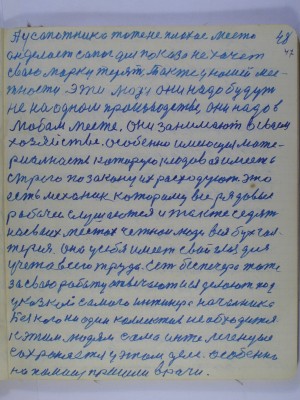 48
47
А у сапожника тоже не плохое место
он делает сапоги для показа не хочет
свою марку терят. Также у нашей мес-
ности эти люди они надо будут
не на одном производстве они надо в
любом месте. Они занимают всякое
хозяйства. Особенно имеющих мате-
риальность которую кладовая имеет
строго по закону их расходуют. Это
есть механик которому все рядовые
рабочие слушаются и также сидят
на своих местах честнои люди вся бухгал-
терия. Она у себя имеет свой глаз для
учета всего труда. Есть бригадир тоже
за свою работу отвечают и делают под
указкой самого инженера начальника
Без кого ни один коллектив не обходится
К этим людям сама инте
сохраняется у этом деле. Особенно
на помощь пришли врачи.